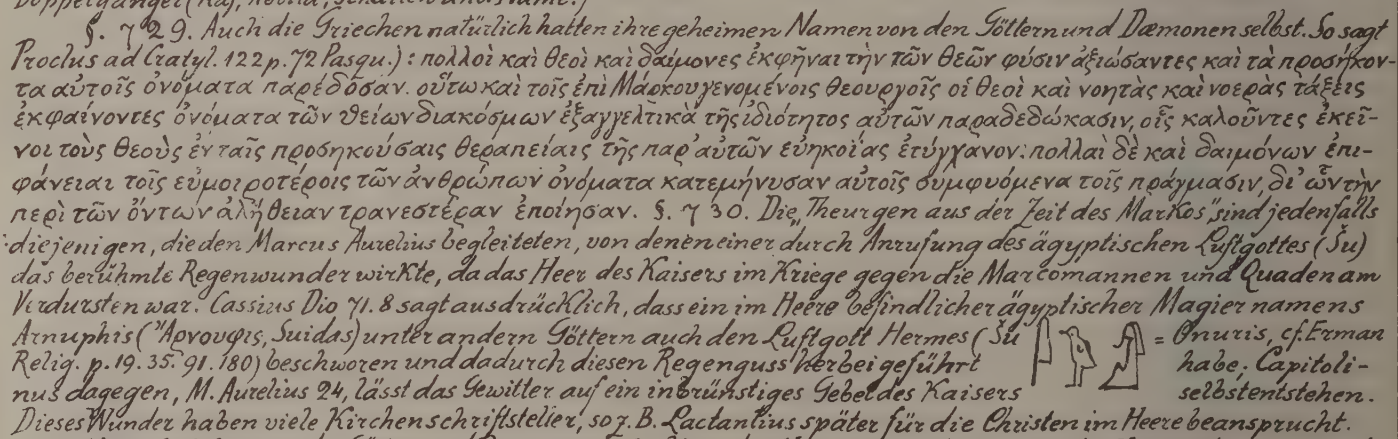 Doppelgänger (Ka),
§. 729. Auch die Griechen natürlich hatten ihre geheimen Namen von den Göttern und Dæmonen selbst. So sagt
Proclus ad Cratyl. 122 p. 72 Pasqu.) : πολλοὶ καὶ θεοὶ καὶ δαίμονες ἐκφῆναι τὴν τῶν θεῶν φύσιν ἀξιώσαντες καὶ τὰ προσήκον-
τα αὐτοῖς ὀνόματα παρέδοσαν. οὕτω καὶ τοῖς ἐπὶ Μάρκου γενομένοις θεουργοῖς οἱ θεοὶ καὶ νοητὰς καὶ νοερὰς τάξεις
ἐκφαίνοντες ὀνόματα τῶν θείων διακόσμων ἐξαγγελτικὰ τῆς ἰδιότητος αὐτῶν παραδεδώκασιν, οἷς καλοῦντες ἐκεῖ-
νοι τοὺς θεοὺς ἐν ταῖς προσηκούσαις θεραπείαις τῆς παρ' αὐτῶν εὐηκοΐας ἐτύγχανον· πολλαὶ δὲ καὶ δαιμόνων ἐπι-
φάνειαι τοῖς εὐμοιροτέροις τῶν ἀνθρώπων ὀνόματα κατεμήνυσαν αὐτοῖς συμφυόμενα τοῖς πράγμασιν, δι' ὧν τὴν
περὶ τῶν ὄντων ἀλήθειαν τρανεστέραν ἐποίησαν. §. 730. Die „Theurgen aus der Zeit des Markos" sind jedenfalls
diejenigen, die den Marcus Aurelius begleiteten, von denen einer durch Anrufung des ägyptischen Luftgottes (Šu)
das berühmte Regenwunder wirkte, da das Heer des Kaisers im Kriege gegen die Marcomannen und Quaden am
Verdursten war. Cassius Dio 71. 8 sagt ausdrücklich, dass ein im Heere befindlicher ägyptischer Magier namens
Arnuphis (Ἄρνουφις, Suidas) unter andern Göttern auch den Luftgott Hermes (Šu = Onuris, cf. Erman
Relig. p. 19. 35. 91. 180) beschworen und dadurch diesen Regenguss herbeigeführt habe; Capitoli-
nus dagegen, M. Aurelius 24, lässt das Gewitter auf ein inbrünstiges Gebet des Kaisers selbst entstehen.
Dieses Wunder haben viele Kirchenschriftsteller, so z. B. Lactantius später für die Christen im Heere beansprucht.